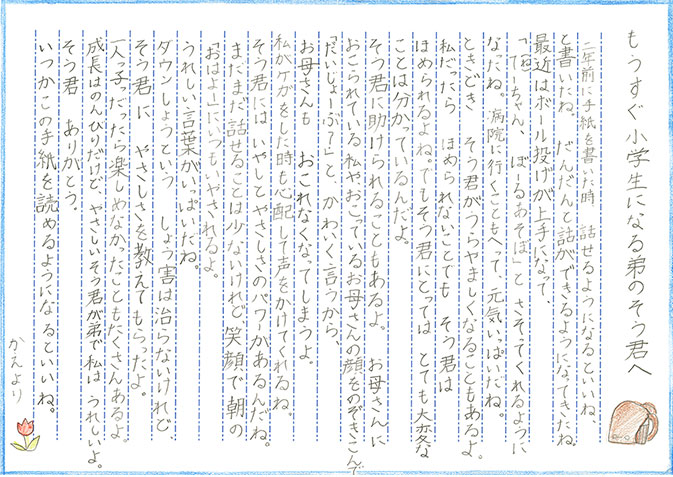 もうすぐ小学生になる弟のそう君へ
二年前に手紙を書いた時、話せるようになるといいね、
と書いたね。だんだんと話ができるようになってきたね。
最近はボール投げが上手になって、
「ねーちゃん、ぼーるあそぼ」と さそってくれるように
なったね。病院に行くこともへって、元気いっぱいだね。
ときどき そう君がうらやましくなることもあるよ。
私だったら ほめられないことでも そう君は
ほめられるよね。でもそう君にとっては とても大変な
ことは分かっているんだよ。
そう君に助けられることもあるよ。 お母さんに
おこられている私やおこっているお母さんの顔をのぞきこんで
「だいじょーぶ?」と かわいく言うから、
お母さんも おこれなくなってしまうよ。
私がケガをした時も心配して声をかけてくれるね。
そう君には いやしとやさしさのパワーがあるんだね。
まだまだ話せることは少ないけれど 笑顔で 朝の
「おはよー」にいつもいやされるよ。
うれしい言葉がいっぱいだね。
ダウンしょうという しょう害は治らないけれど、
そう君に やさしさを教えてもらったよ。
一人っ子だったら楽しめなかったこともたくさんあるよ。
成長はのんびりだけど、やさしいそう君が弟で私は うれしいよ。
そう君 ありがとう。
いつかこの手紙を読めるようになるといいね。
かえより